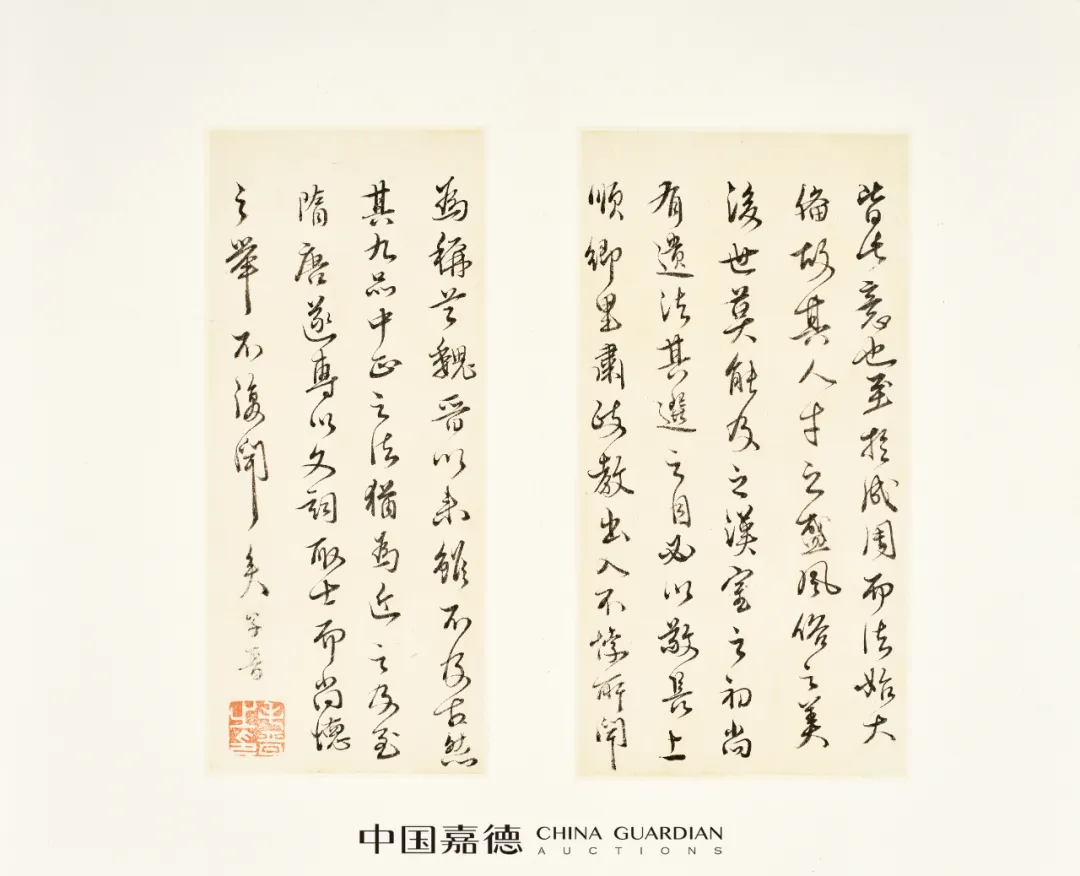 皆此意也至於成周而法始大
備故其人才之盛風俗之美
後世莫能及之漢室之初尚
有遺法其選之目必以敬長上
順鄉里肅政教出入不悖所聞
為稱首魏晉以來雖不及古然
其九品中正之法猶為近之及至
隋唐遂專以文詞取士而尚德
之舉不復聞矣 子晉
中国嘉德 CHINA GUARDIAN
AUCTIONS